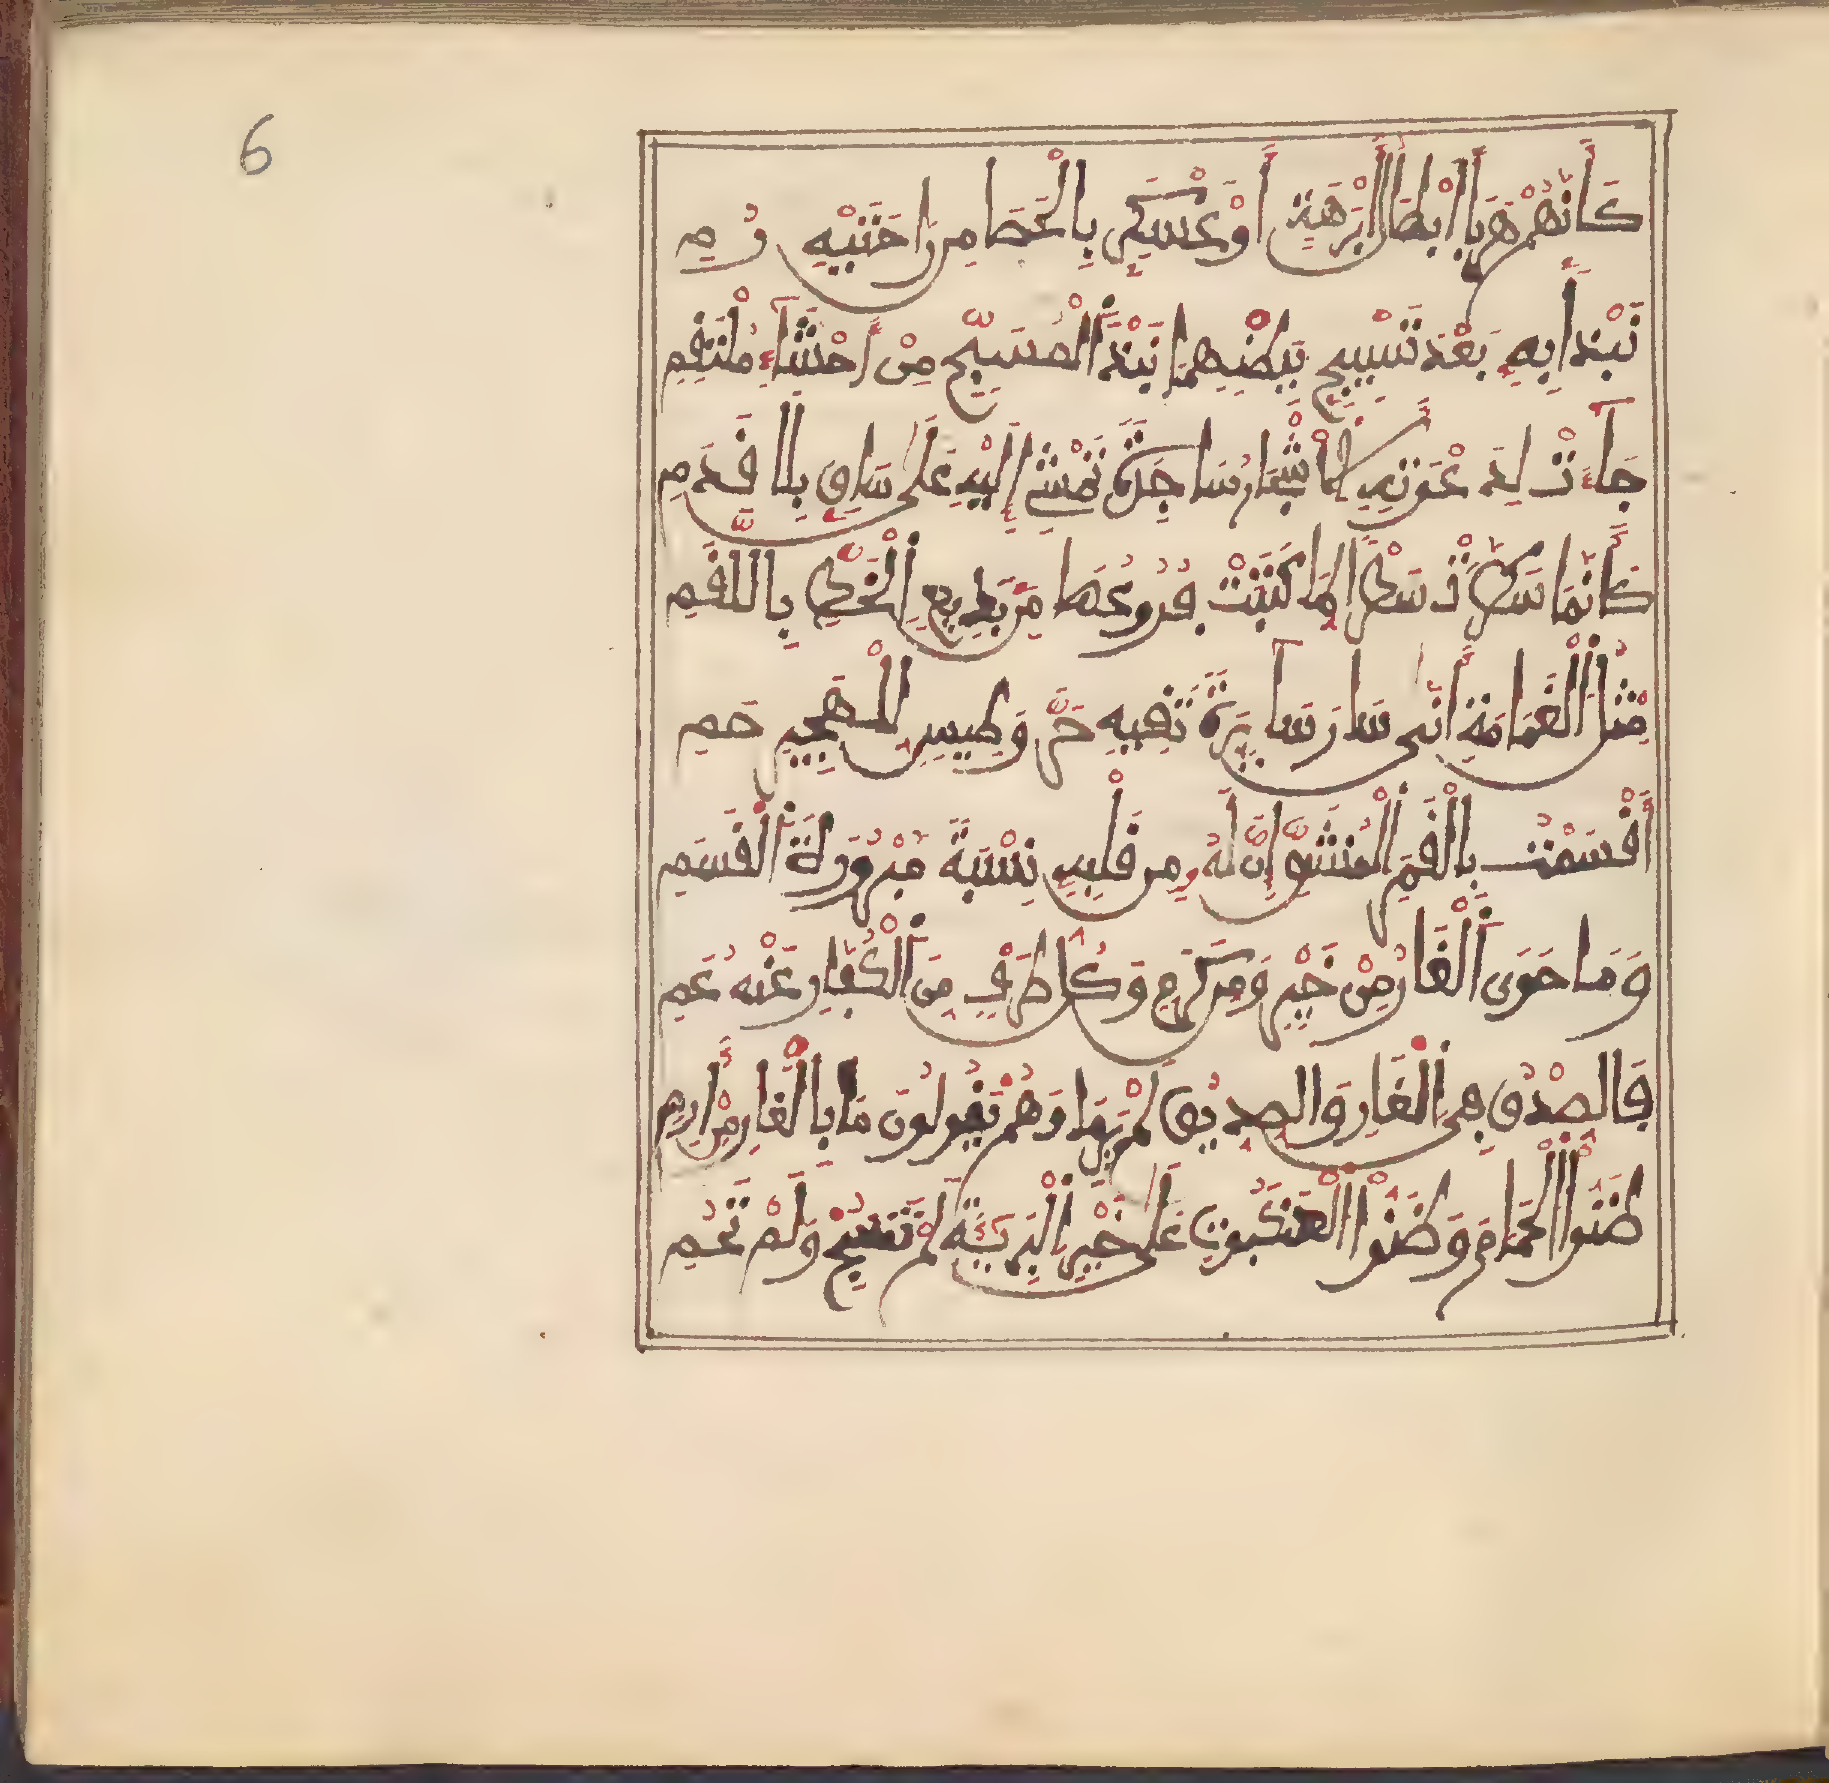 6
كَأَنَّهُمْ هَرَبًا أَبْطَالُ أَبْرَهَةٍ أَوْ عَسْكَرٍ بِالْحَصَا مِن رَاحَتَيْهِ رُمِ
نَبْذًا بِهِ بَعْدَ تَسْبِيحٍ بِبَطْنِهِمَا نَبْذَ الْمُسَبِّحِ مِنْ أَحْشَآءِ مُلْتَقِمِ
جَآءَتْ لِدَعْوَتِهِ الْأَشْجَارُ سَاجِدَةً تَمْشِي إِلَيْهِ عَلَى سَاقٍ بِلَا قَدَمِ
كَأَنَّمَا سَطَرَتْ سَطْرًا لِمَا كَتَبَتْ فُرُوعُهَا مِن بَدِيعِ الْخَطِّ بِاللَّقَمِ
مِثْلُ الْغَمَامَةِ أَنَّى سَارَ سَآيِرَةً تَقِيهِ حَرَّ وَطِيسٍ لِلْهَجِيرِ حَمِ
أَقْسَمْتُ بِالْقَمَرِ الْمُنْشَقِّ إِنَّ لَهُ مِن قَلْبِهِ نِسْبَةً مَبْرُورَةَ الْقَسَمِ
وَمَا حَوَى الْغَارُ مِنْ خَيْرٍ وَمِن كَرَمٍ وَكُلُّ طَرْفٍ مِنَ الْكُفَّارِ عَنْهُ عَمِ
فَالصِّدْقُ فِي الْغَارِ وَالصِّدِّيقُ لَمْ يَرِمَا وَهُمْ يَقُولُونَ مَا بِالْغَارِ مِنْ أَرِمِ
ظَنُّوا الْحَمَامَ وَظَنُّوا الْعَنْكَبُوتَ عَلَى خَيْرِ الْبَرِيَّةِ لَمْ تَنْسُجْ وَلَمْ تَحُمِ